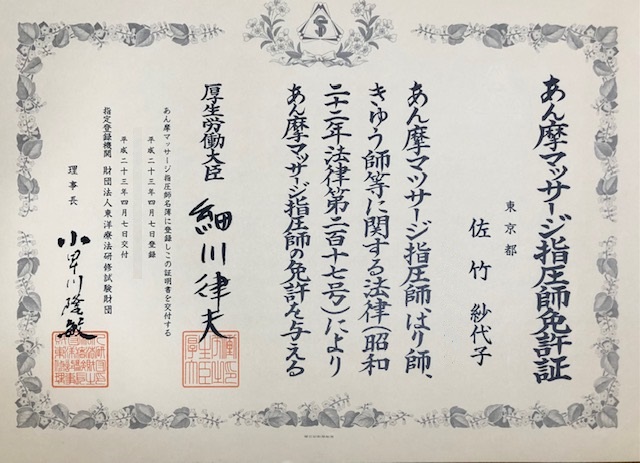 あん摩マッサージ指圧師免許証
東京都
佐竹 紗代子
あん摩マツサージ指圧師、はり師、
きゆう師等に関する法律(昭和
二十二年法律第二百十七号)により
あん摩マツサージ指圧師の免許を与える
厚生労働大臣 細川律夫
あん摩マツサージ指圧師名簿に登録しこの証明書を交付する
平成二十三年四月七日登録
平成二十三年四月七日交付
指定登録機関 財団法人東洋療法研修試験財団
理事長 小早川隆敏